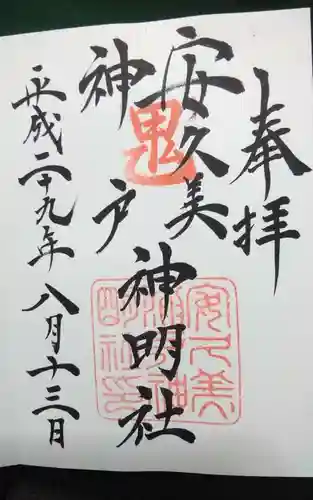 奉拝
安久美
神戸
神明社
平成二十九年八月十三日
鬼
安久美神戸神明社印